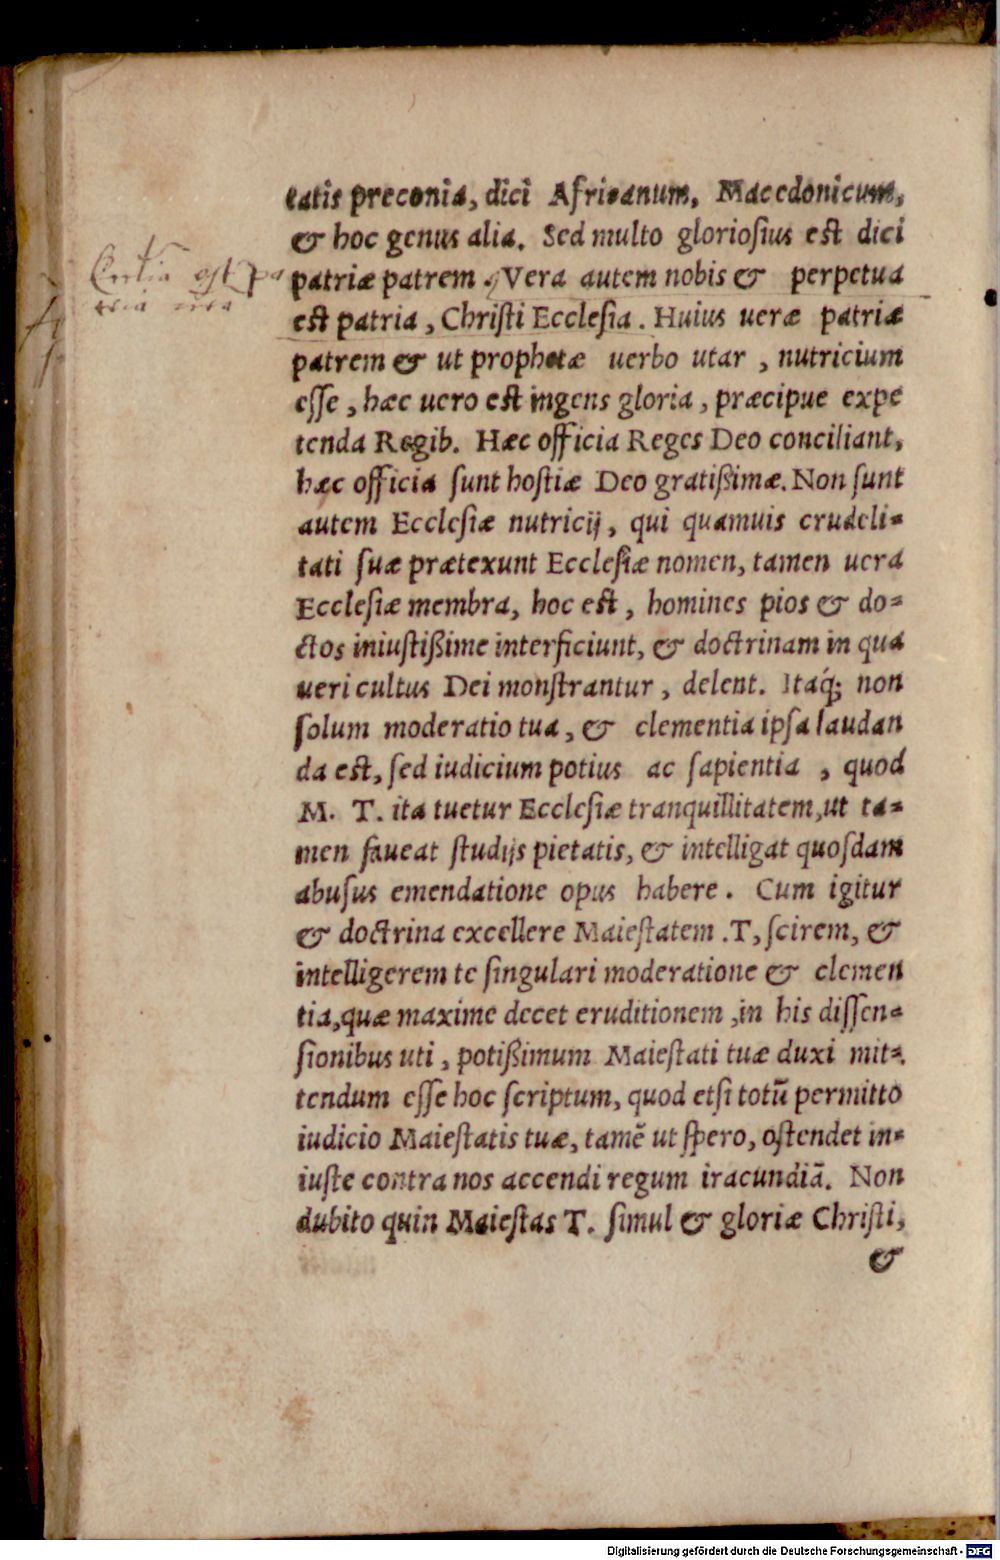 tatis preconia, dici Africanum, Macedonicum,
& hoc genus alia. Sed multo gloriosius est dici
patriæ patrem. Vera autem nobis & perpetua
est patria, Christi Ecclesia. Huius ueræ patriæ
patrem & ut prophetæ uerbo utar, nutricium
esse, hæc uero est ingens gloria, præcipue expe
tenda Regib. Hæc officia Reges Deo conciliant,
hæc officia sunt hostiæ Deo gratißimæ. Non sunt
autem Ecclesiæ nutricij, qui quamuis crudeli=
tati suæ prætexunt Ecclesiæ nomen, tamen uera
Ecclesiæ membra, hoc est, homines pios & do=
ctos iniustißime interficiunt, & doctrinam in qua
ueri cultus Dei monstrantur, delent. Itaq́; non
solum moderatio tua, & clementia ipsa laudan
da est, sed iudicium potius ac sapientia, quod
M. T. ita tuetur Ecclesiæ tranquillitatem, ut ta=
men faueat studijs pietatis, & intelligat quosdam
abusus emendatione opus habere. Cum igitur
& doctrina excellere Maiestatem .T, scirem, &
intelligerem te singulari moderatione & clemen
tia, quæ maxime decet eruditionem, in his dissen=
sionibus uti, potißimum Maiestati tuæ duxi mit=
tendum esse hoc scriptum, quod etsi totũ permitto
iudicio Maiestatis tuæ, tamẽ ut spero, ostendet in=
iuste contra nos accendi regum iracundiã. Non
dubito quin Maiestas T. simul & gloriæ Christi,
&
est pa
Digitalisierung gefördert durch die Deutsche Forschungsgemeinschaft - DFG